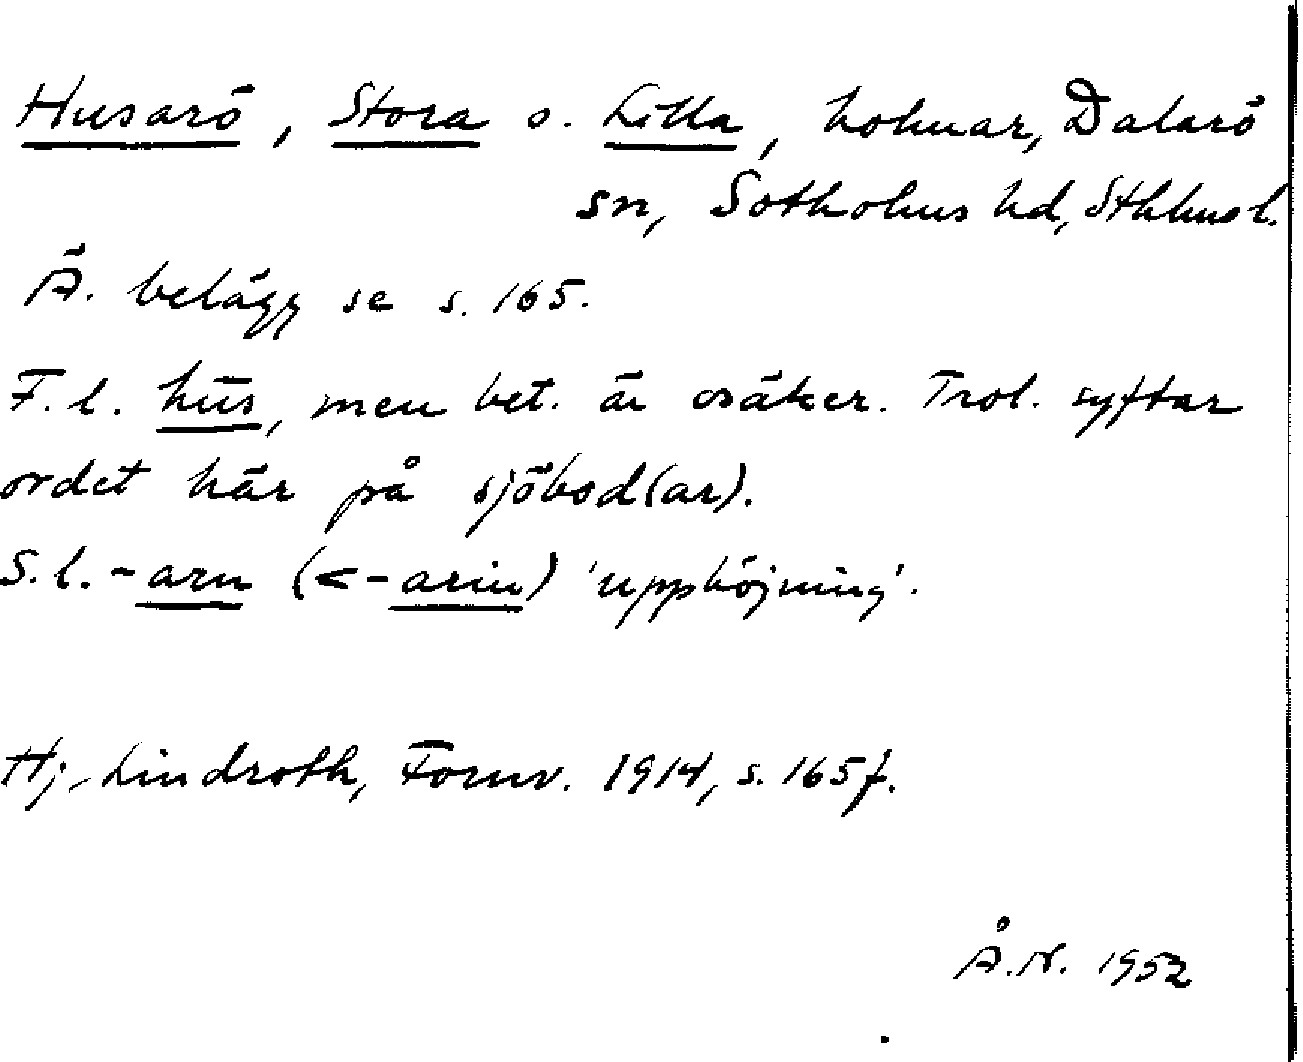 Husarö, Stora o. Lilla, holmar, Dalarö
sn, Sotholms hd, Sthlms l.
Ä. belägg se s. 165.
F. l. hūs, men bet. är osäker. Trol. syftar
ordet här på sjöbod(ar).
S. l. -arn (<-arin) 'upphöjning'.
Hj. Lindroth, Fornv. 1914, s. 165 f.
Å. N. 1952